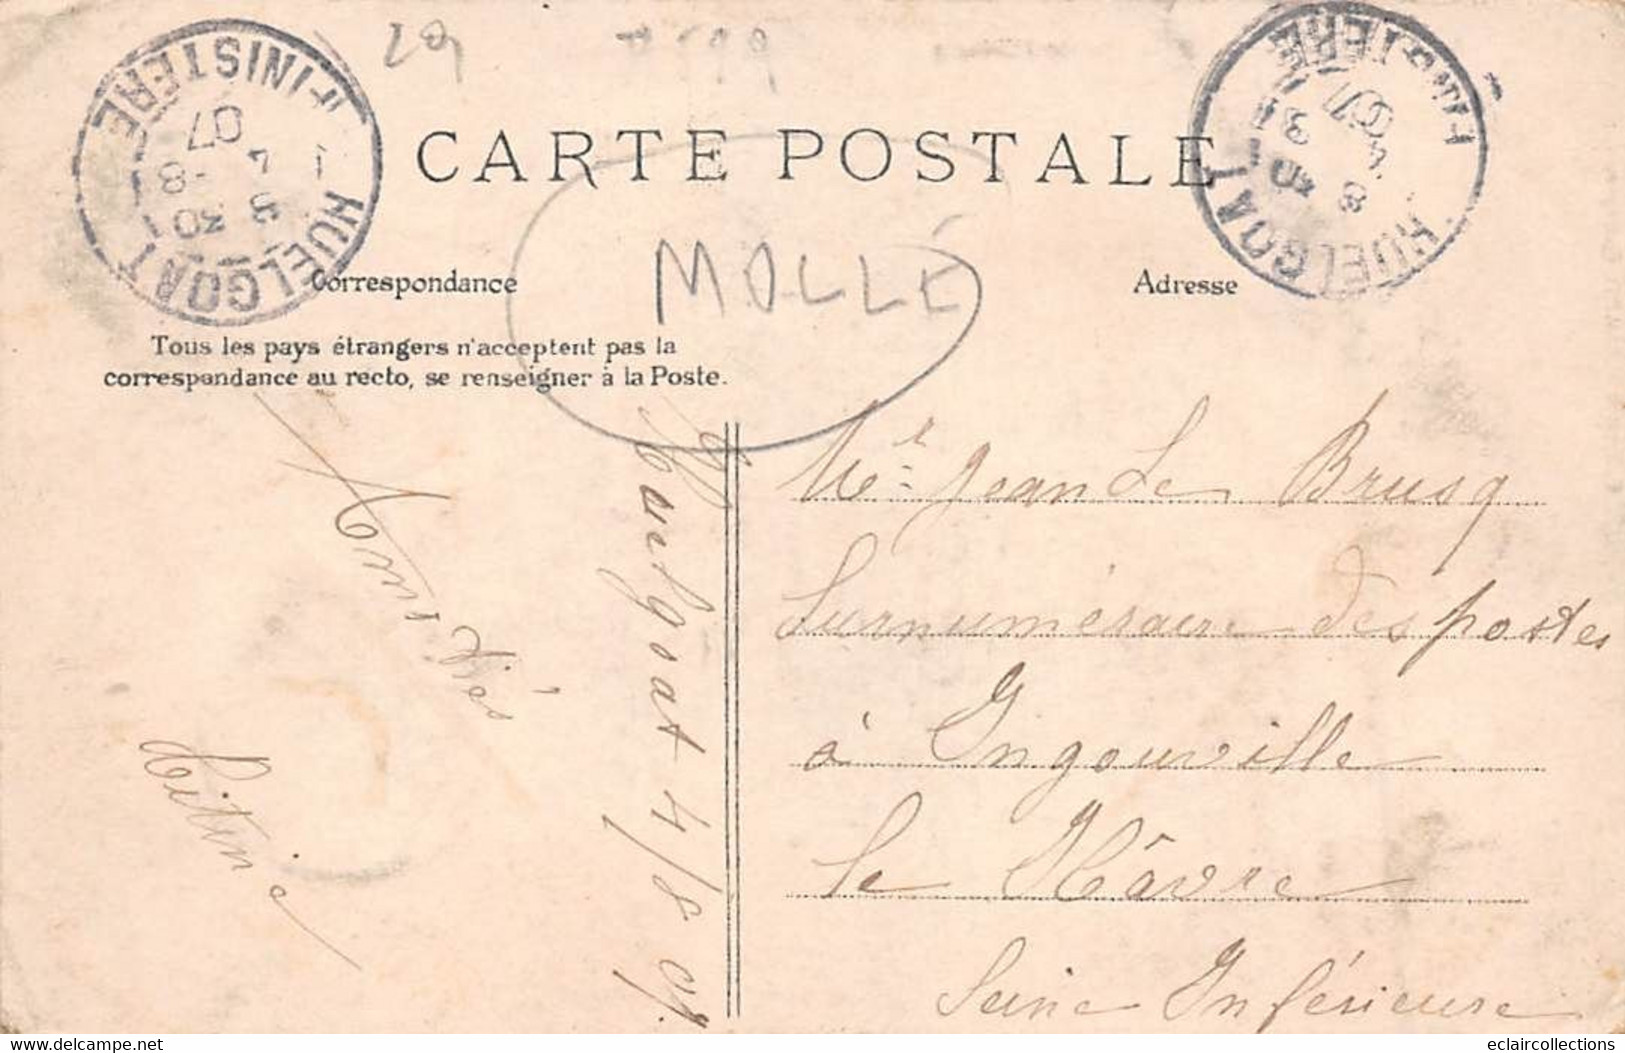 29
CARTE POSTALE
MOLLÉ
HUELGOAT
FINISTERE
8 30
4 -8
07
HUELGOAT
FINISTERE
Correspondance
Adresse
Tous les pays étrangers n'acceptent pas la
correspondance au recto, se renseigner à la Poste.
Huelgoat 4/8 07.
Amitiés
Titine
Mr Jean Le Brusq
Surnuméraire des postes
à Ingouville
le Hâvre
Seine Inférieure
eclaircollections
delcampe.net